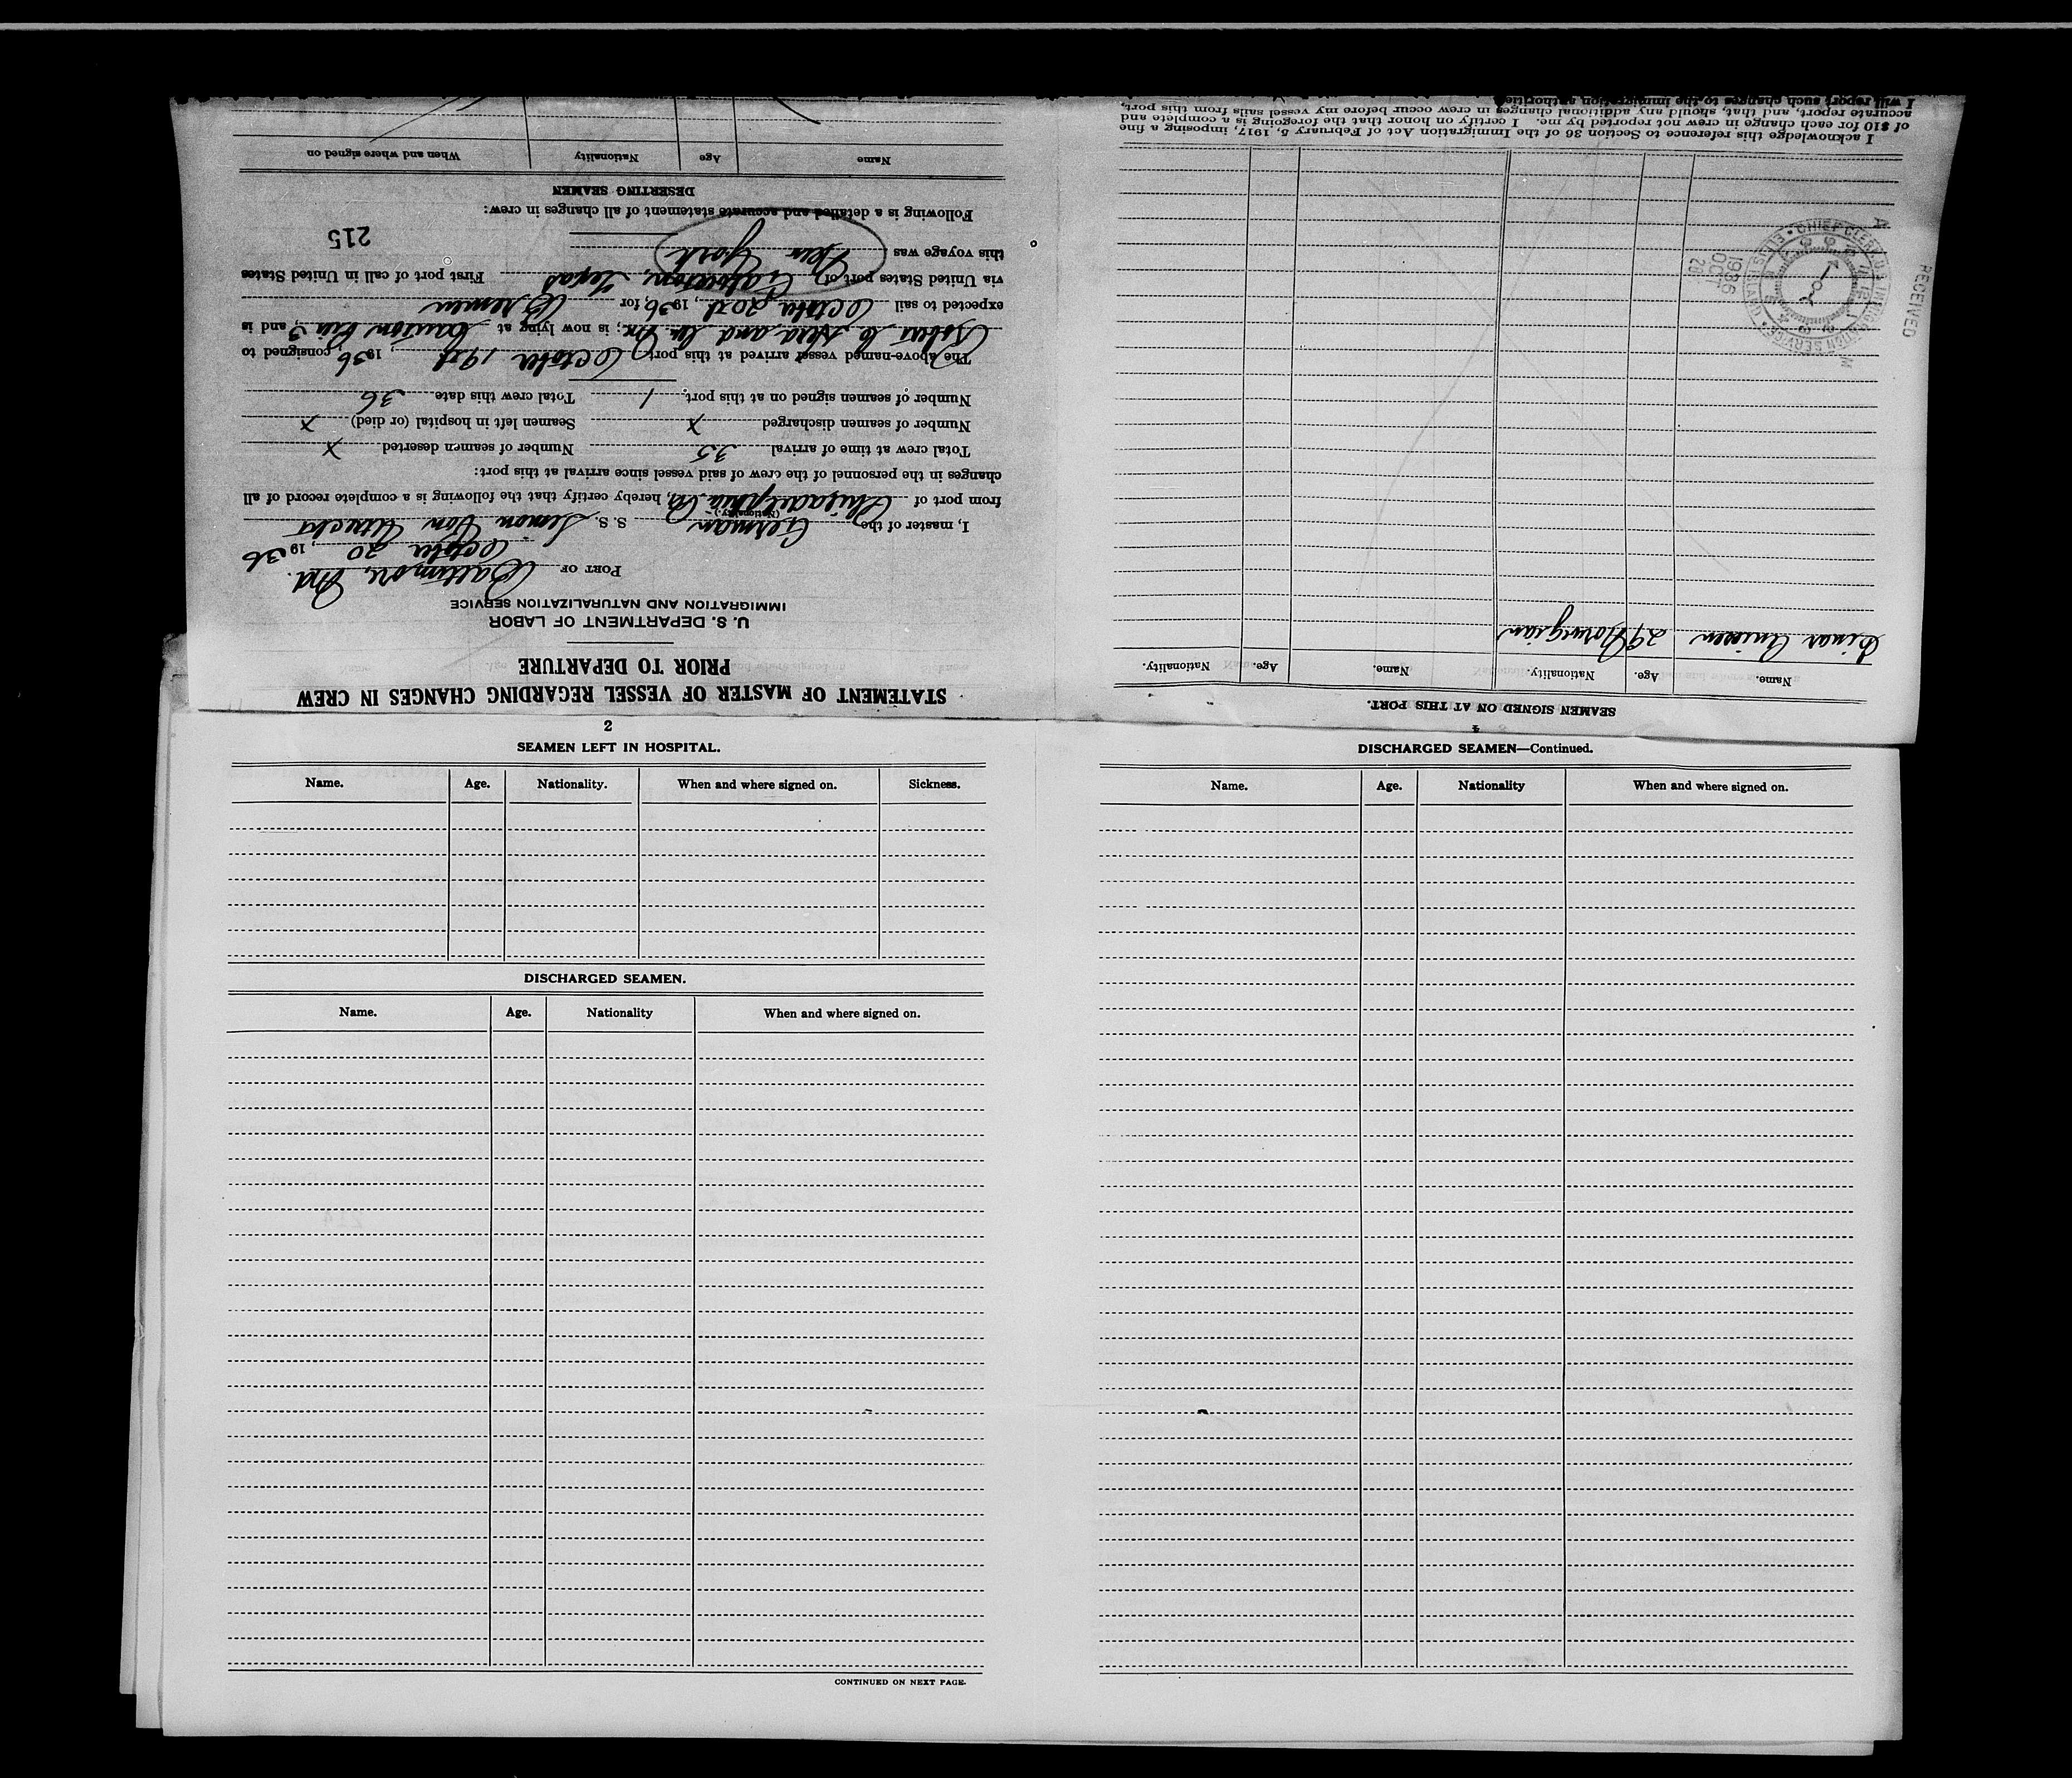 STATEMENT OF MASTER OF VESSEL REGARDING CHANGES IN CREW
PRIOR TO DEPARTURE
U. S. DEPARTMENT OF LABOR
IMMIGRATION AND NATURALIZATION SERVICE
PORT OF Baltimore, Md.
October 20, 1936
I, master of the German S. S. Simon Von Utrecht
(Nationality.)
from port of Philadelphia Pa, hereby certify that the following is a complete record of all
changes in the personnel of the crew of said vessel since arrival at this port:
Total crew at time of arrival 35 Number of seamen deserted x
Number of seamen discharged x Seamen left in hospital (or died) x
Number of seamen signed on at this port 1 Total crew this date 36
The above-named vessel arrived at this port October 19th, 1936, consigned to
; is now lying at Canton Pier 3, and is
expected to sail October 20th, 1936, for Bremen
via United States port of Galveston, Texas First port of call in United States
this voyage was New York
215
Following is a detailed and accurate statement of all changes in crew:
DESERTING SEAMEN
Name Age Nationality When and where signed on
SEAMEN SIGNED ON AT THIS PORT.
Name. Age. Nationality. Name. Age. Nationality.
29 Norwegian
I acknowledge this reference to Section 36 of the Immigration Act of February 5, 1917, imposing a fine
of $10 for each change in crew not reported by me. I certify on honor that the foregoing is a complete and
accurate report, and that, should any additional changes in crew occur before my vessel sails from this port,
I will report such changes to the immigration authorities.
RECEIVED
1936
OCT
20
2
SEAMEN LEFT IN HOSPITAL.
Name. Age. Nationality. When and where signed on. Sickness.
DISCHARGED SEAMEN.
Name. Age. Nationality When and where signed on.
CONTINUED ON NEXT PAGE.
DISCHARGED SEAMEN—Continued.
Name. Age. Nationality When and where signed on.